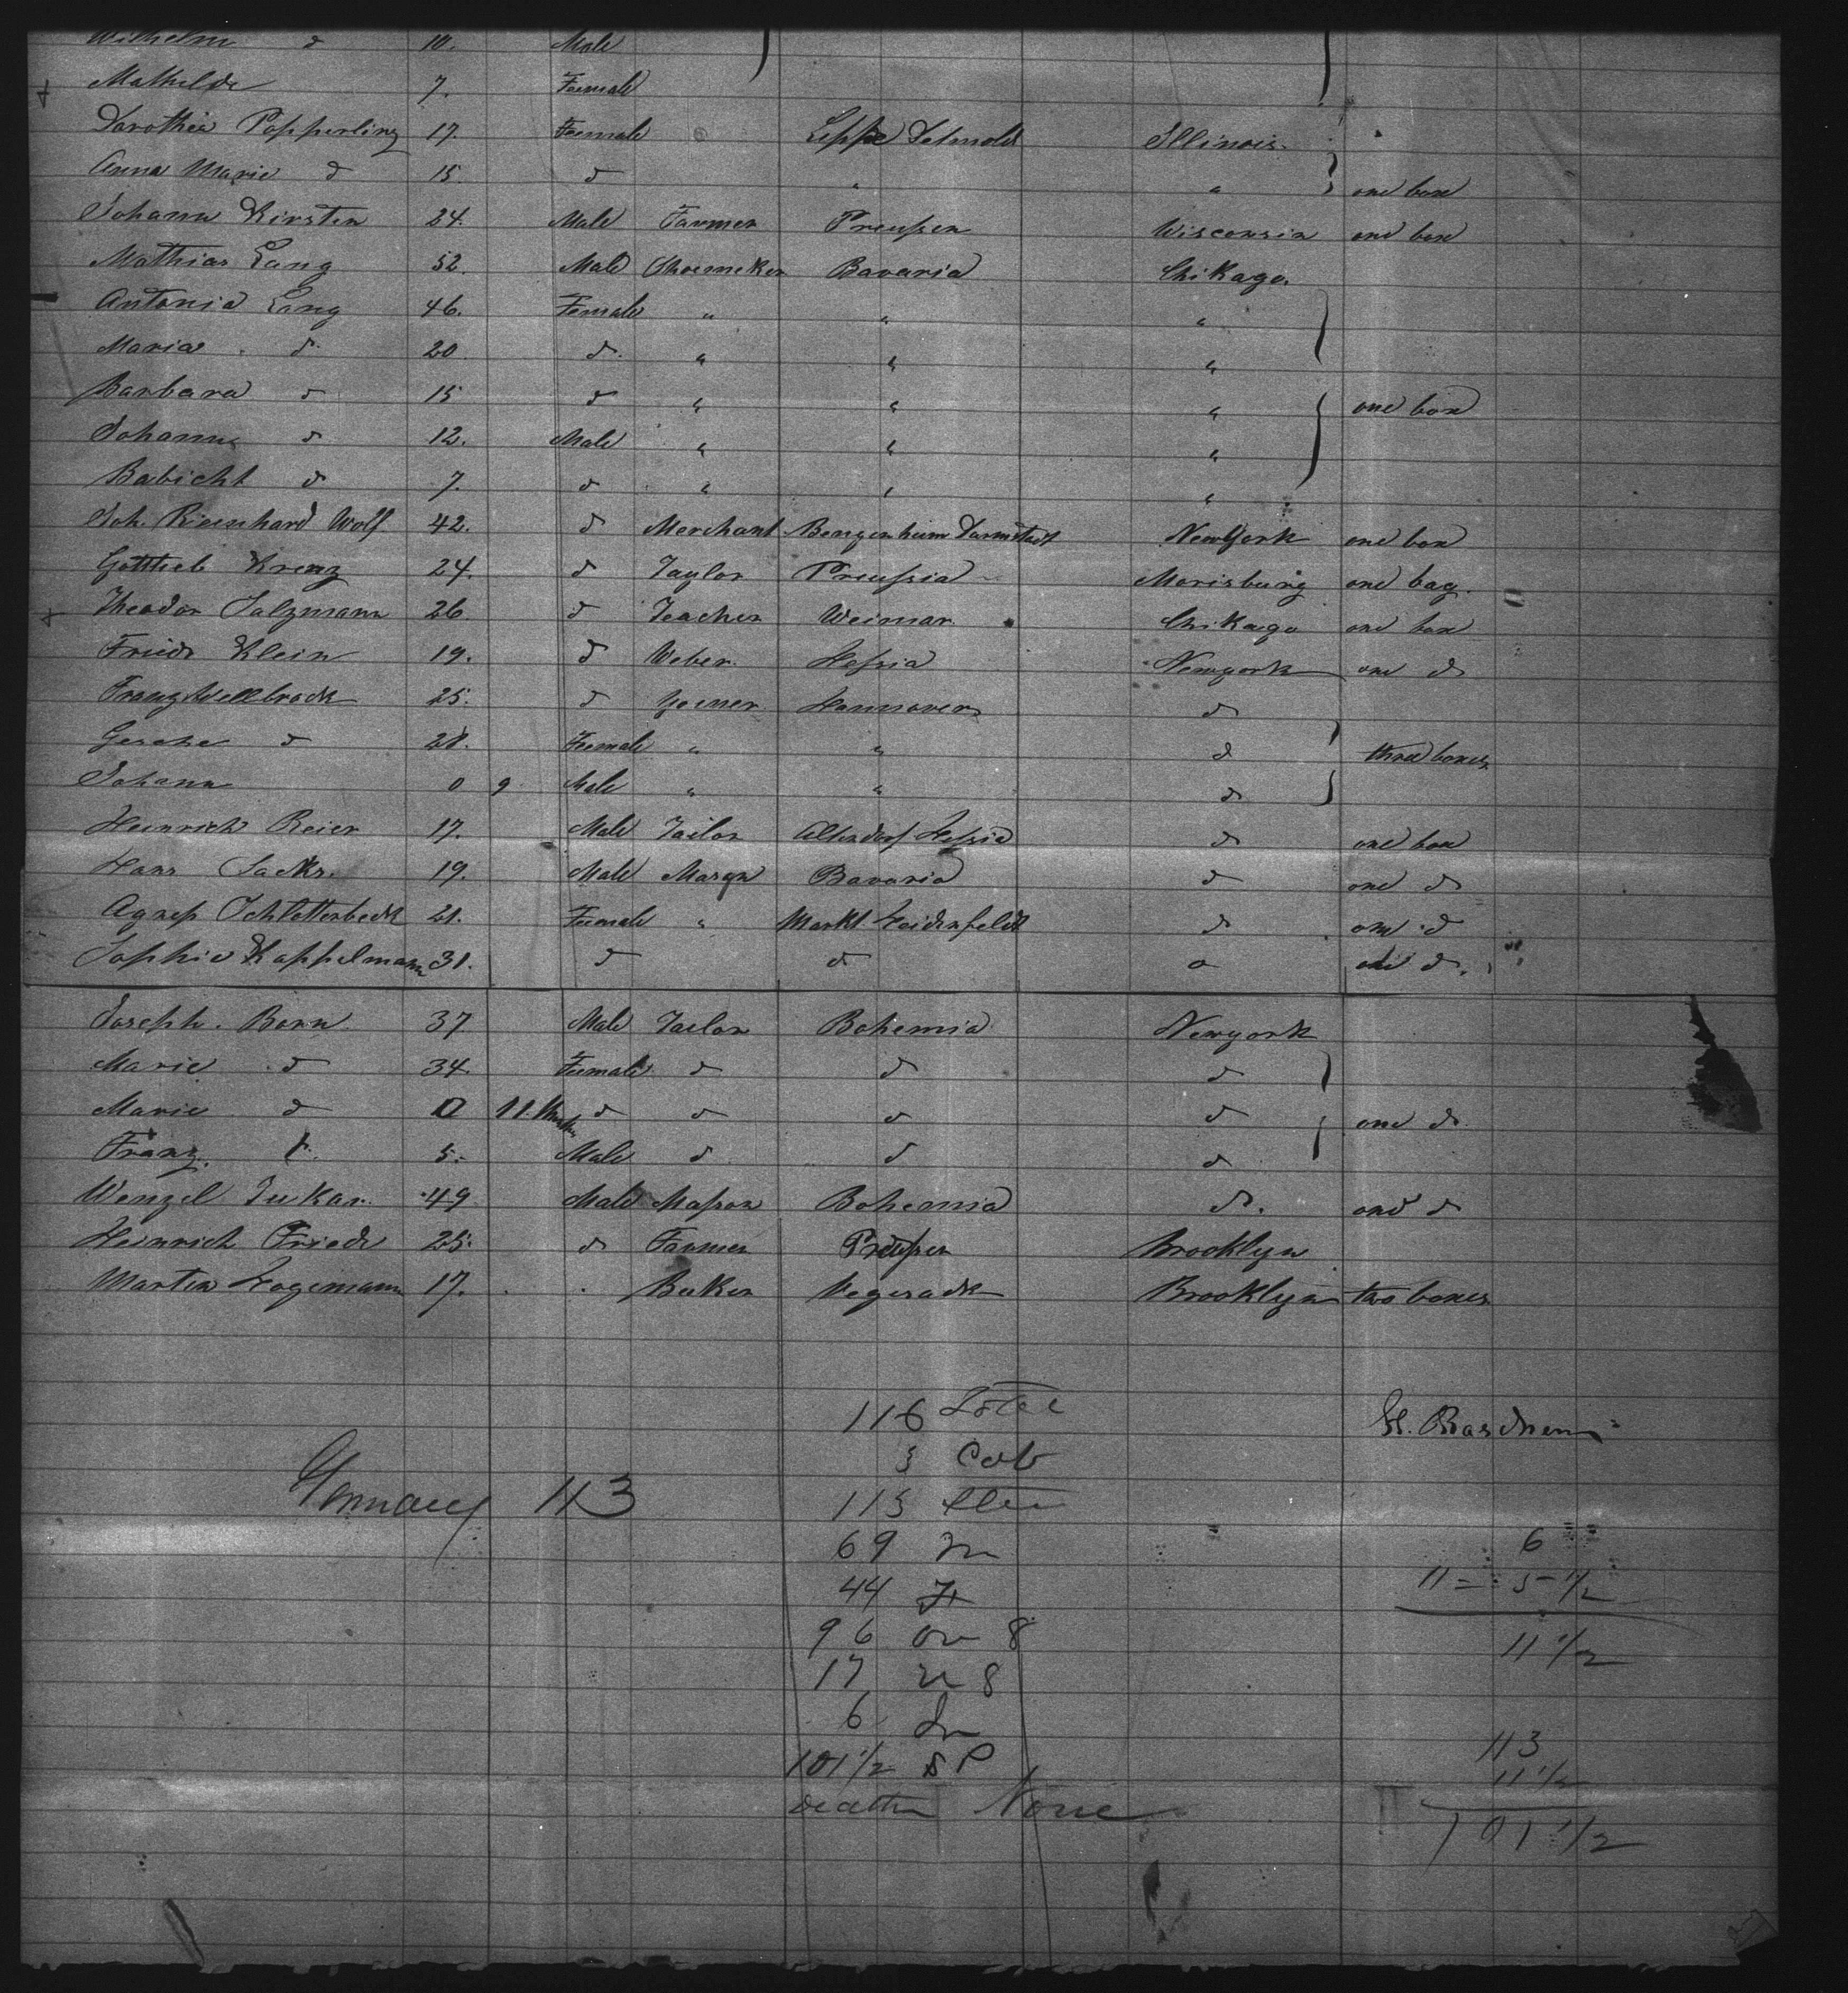 Wilhelm d 10. Male
Mathilde 7. Female
Dorothee Popperling 17. Female Lippe Detmold Illinois.
Anna Marie d 15. d " " one box
Johann Kirsten 24. Male Farmer Preußen Wisconsin one box
Mathias Lang 52. Male Shoemeker Bavaria Chikago.
Antonia Lang 46. Female " " "
Maria d 20. d. " " "
Barbara d 15 d " " " one box
Johann d 12. Male " " "
Babicht d 7. d " " "
Joh. Rienhard Wolf 42. d Merchant Bengenheim Darmstadt NewYork one box
Gottlieb Krenz 24. d Taylor Preußia Morisburg one bag.
Theodor Salzmann 26. d Teacher Weimar Chikago one box
Friedr Klein 19. d Weber Heßia Newyork one d
Franz Wellbrock 25. d Hannover d
Gesche d 28. Female " " d three boxes
Johann 0 9 Male " " d
Heinrich Reier 17. Male Tailor Altendorf Heßia d one box
Hans Sacks. 19. Male Masqn Bavaria d one d
Agneß Schletterbeck 21. Female " Markt Heidenfeldt d one d
Sophie Kappelmann 31. d d d one d.
Joseph. Born 37 Male Tailor Bohemia Newyork
Marie d 34. Female d d d
Marie d 0 11. d d d d one d
Franz. 5. Male d d d
Wenzel Tukar. 49 Male Maßon Bohemia d. one d
Heinrich Friedr 25. d Farmer Preußen Brooklyn
Martin Hogemann 17. Baker Vegesack Brooklyn two boxes
116 Total
3 Cab
Germany 113
113 Stee
69 M
44 F
96 ov 8
17 u 8
6 In
101 1/2 S P
Death None
6
11 = 5 1/2
11 1/2
113
11 1/2
101 1/2